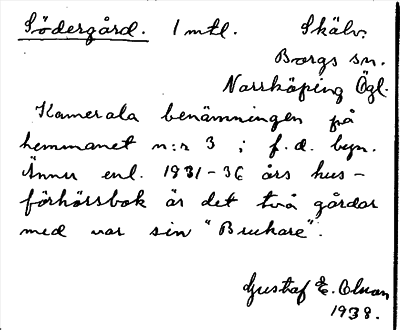 Södergård. 1 mtl. Skälv.
Borgs sn.
Norrköping Ögl.
Kamerala benämningen på
hemmanet n:r 3 i f.d. byn.
Ännu enl. 1931-36 års hus-
förhörsbok är det två gårdar
med var sin "Brukare".
Gustaf E. Olsson
1938.